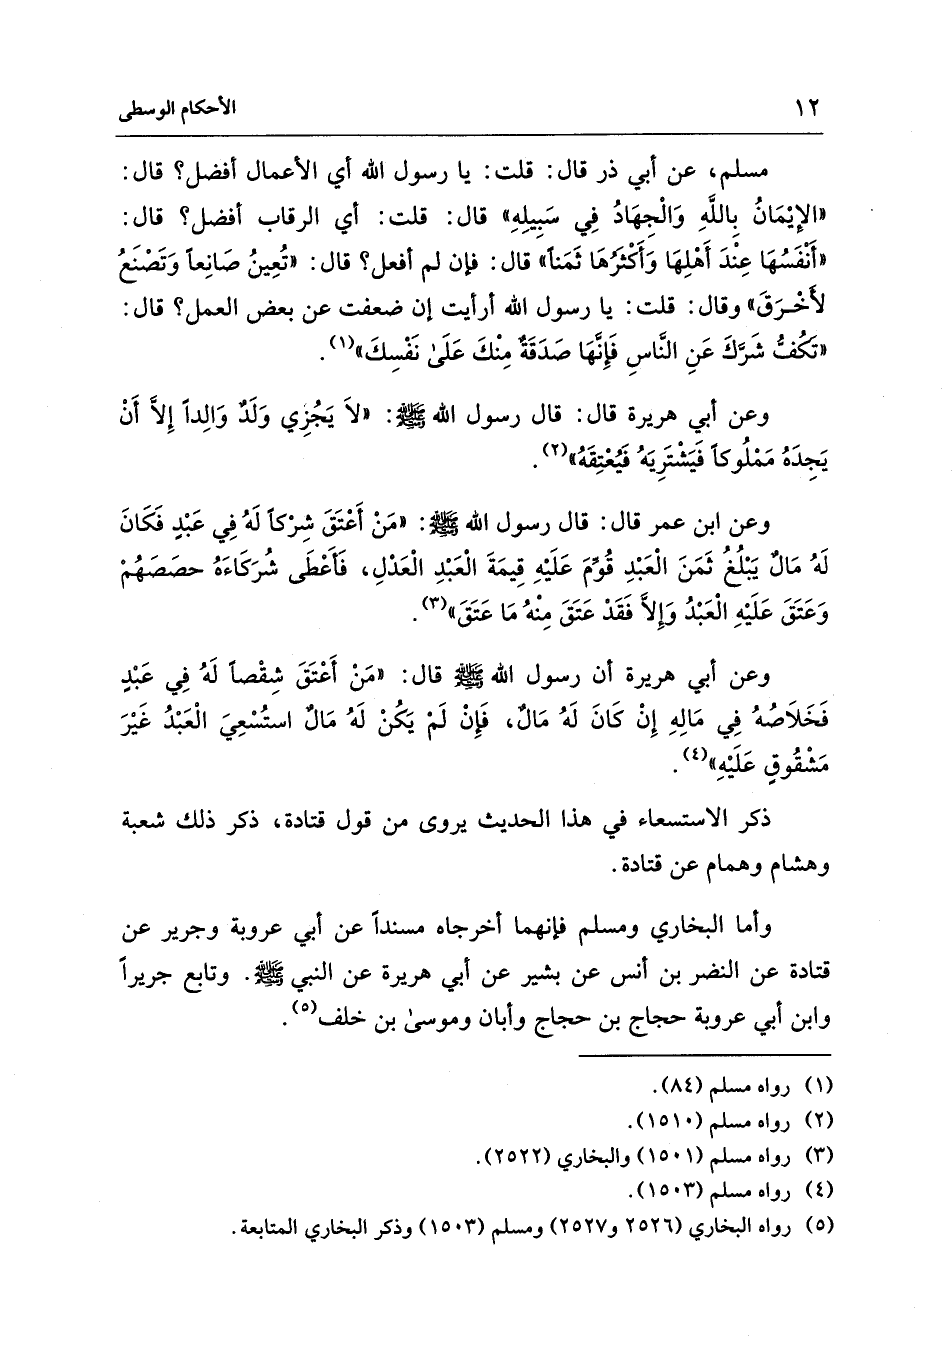 ١٢ الأحكام الوسطى
مسلم، عن أبي ذر قال: قلت: يا رسول الله أي الأعمال أفضل؟ قال:
«الإِيْمَانُ بِاللَّهِ وَالْجِهَادُ فِي سَبِيلِهِ» قال: قلت: أي الرقاب أفضل؟ قال:
«أَنْفَسُهَا عِنْدَ أَهْلِهَا وَأَكْثَرُهَا ثَمَناً» قال: فإن لم أفعل؟ قال: «تُعِينُ صَانِعاً وَتَصْنَعُ
لأَخْرَقَ» وقال: قلت: يا رسول الله أرأيت إن ضعفت عن بعض العمل؟ قال:
«تَكُفُّ شَرَّكَ عَنِ النَّاسِ فَإِنَّهَا صَدَقَةٌ مِنْكَ عَلَىٰ نَفْسِكَ»(١).
وعن أبي هريرة قال: قال رسول الله ﷺ: «لاَ يَجْزِي وَلَدٌ وَالِداً إِلاَّ أَنْ
يَجِدَهُ مَمْلُوكاً فَيَشْتَرِيَهُ فَيُعْتِقَهُ»(٢).
وعن ابن عمر قال: قال رسول الله ﷺ: «مَنْ أَعْتَقَ شِرْكاً لَهُ فِي عَبْدٍ فَكَانَ
لَهُ مَالٌ يَبْلُغُ ثَمَنَ الْعَبْدِ قُوِّمَ عَلَيْهِ قِيمَةَ الْعَبْدِ الْعَدْلِ، فَأَعْطَى شُرَكَاءَهُ حصَصَهُمْ
وَعَتَقَ عَلَيْهِ الْعَبْدُ وَإِلاَّ فَقَدْ عَتَقَ مِنْهُ مَا عَتَقَ»(٣).
وعن أبي هريرة أن رسول الله ﷺ قال: «مَنْ أَعْتَقَ شِقْصاً لَهُ فِي عَبْدٍ
فَخَلَاصُهُ فِي مَالِهِ إِنْ كَانَ لَهُ مَالٌ، فَإِنْ لَمْ يَكُنْ لَهُ مَالٌ استُسْعِيَ الْعَبْدُ غَيْرَ
مَشْقُوقٍ عَلَيْهِ»(٤).
ذكر الاستسعاء في هذا الحديث يروى من قول قتادة، ذكر ذلك شعبة
وهشام وهمام عن قتادة.
وأما البخاري ومسلم فإنهما أخرجاه مسنداً عن أبي عروبة وجرير عن
قتادة عن النضر بن أنس عن بشير عن أبي هريرة عن النبي ﷺ. وتابع جريراً
وابن أبي عروبة حجاج بن حجاج وأبان وموسىٰ بن خلف(٥).
(١) رواه مسلم (٨٤).
(٢) رواه مسلم (١٥١٠).
(٣) رواه مسلم (١٥٠١) والبخاري (٢٥٢٢).
(٤) رواه مسلم (١٥٠٣).
(٥) رواه البخاري (٢٥٢٦ و٢٥٢٧) ومسلم (١٥٠٣) وذكر البخاري المتابعة.